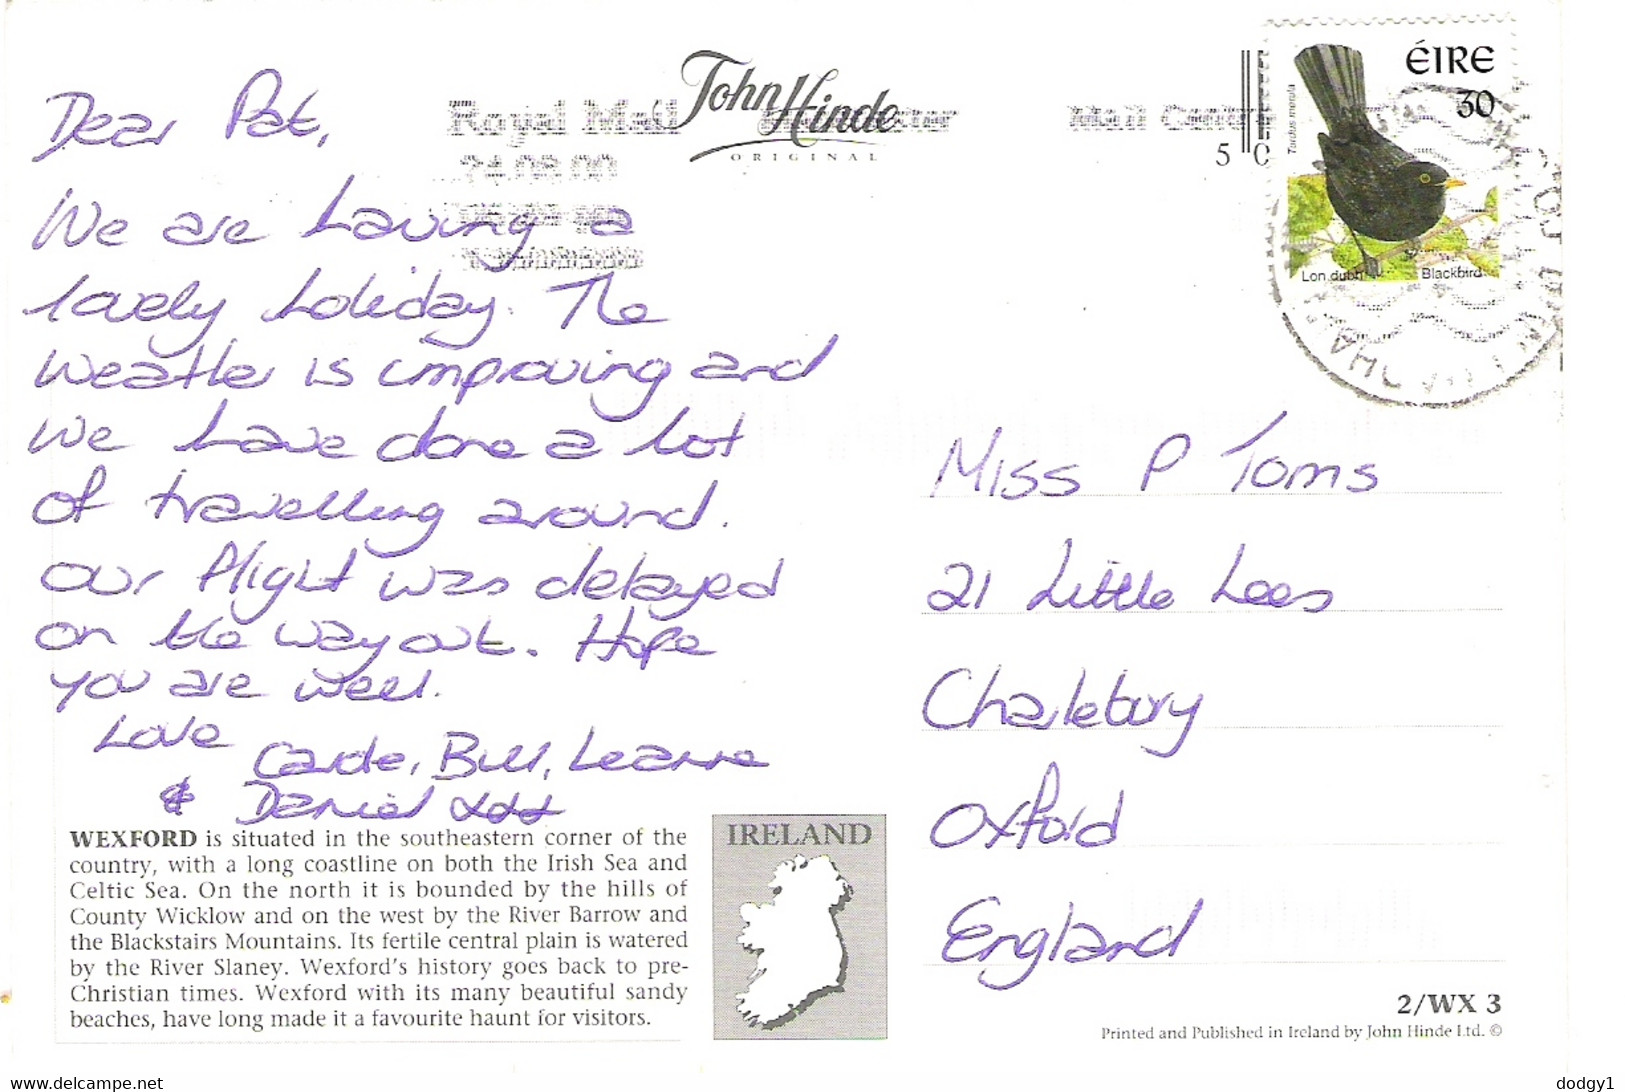 Dear Pat,
We are having a
lovely holiday. The
weather is improving and
we have done a lot
of travelling around.
Our flight was delayed
on the way out. Hope
you are well.
Love
Carole, Bill, Leanne
& Daniel xxx
WEXFORD is situated in the southeastern corner of the
country, with a long coastline on both the Irish Sea and
Celtic Sea. On the north it is bounded by the hills of
County Wicklow and on the west by the River Barrow and
the Blackstairs Mountains. Its fertile central plain is watered
by the River Slaney. Wexford's history goes back to pre-
Christian times. Wexford with its many beautiful sandy
beaches, have long made it a favourite haunt for visitors.
IRELAND
John Hinde
ORIGINAL
Royal Mail
Mail Centre
5 0
ÉIRE
30
Turdus merula
Lon dubh Blackbird
Miss P Toms
21 Little Lees
Charlebury
Oxford
England
2/WX 3
Printed and Published in Ireland by John Hinde Ltd. ©
dodgy1
www.delcampe.net